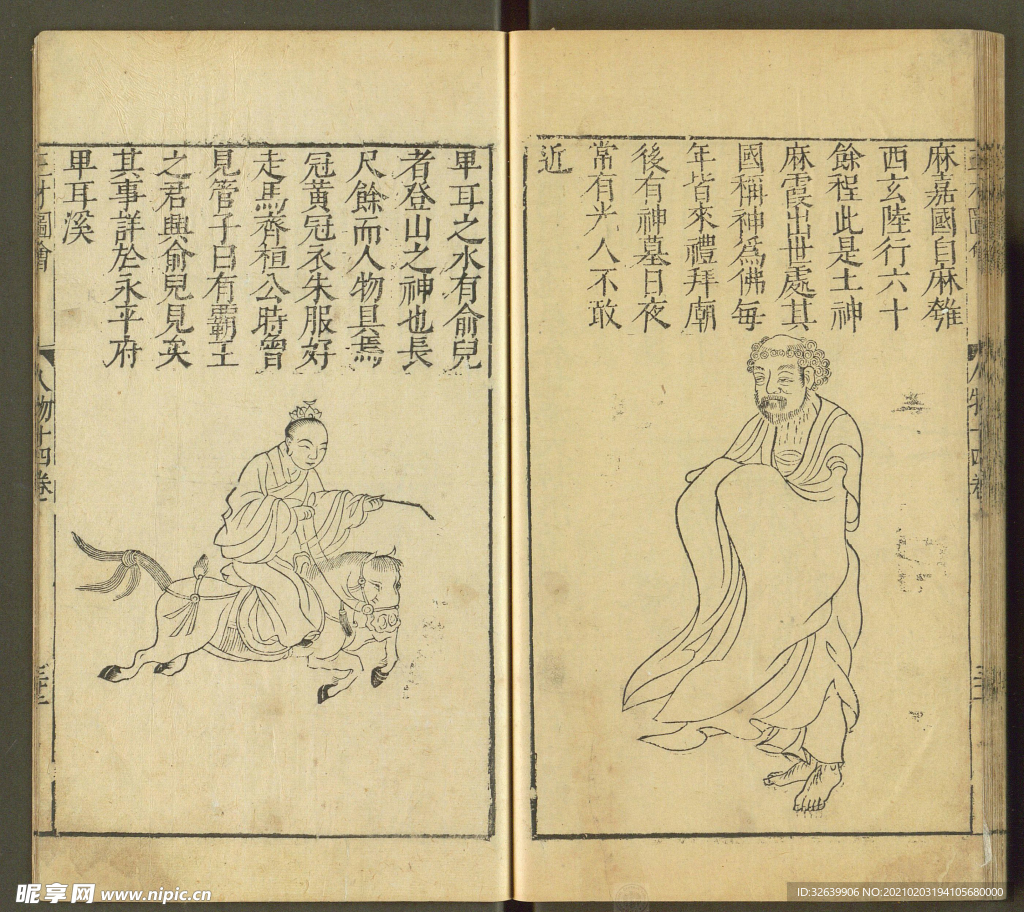 麻嘉國自麻雞
西玄陸行六十
餘程此是土神
麻霞出世處其
國稱神爲佛每
年皆來禮拜廟
後有神墓日夜
常有光人不敢
近
卑耳之水有俞兒
者登山之神也長
尺餘而人物具焉
冠黃冠衣朱服好
走馬齊桓公時曾
見管子曰有霸王
之君興俞兒見矣
其事詳於永平府
卑耳溪
三才圖會
人物十四卷
昵享网 www.nipic.cn
ID:32639906 NO:20210203194105680000